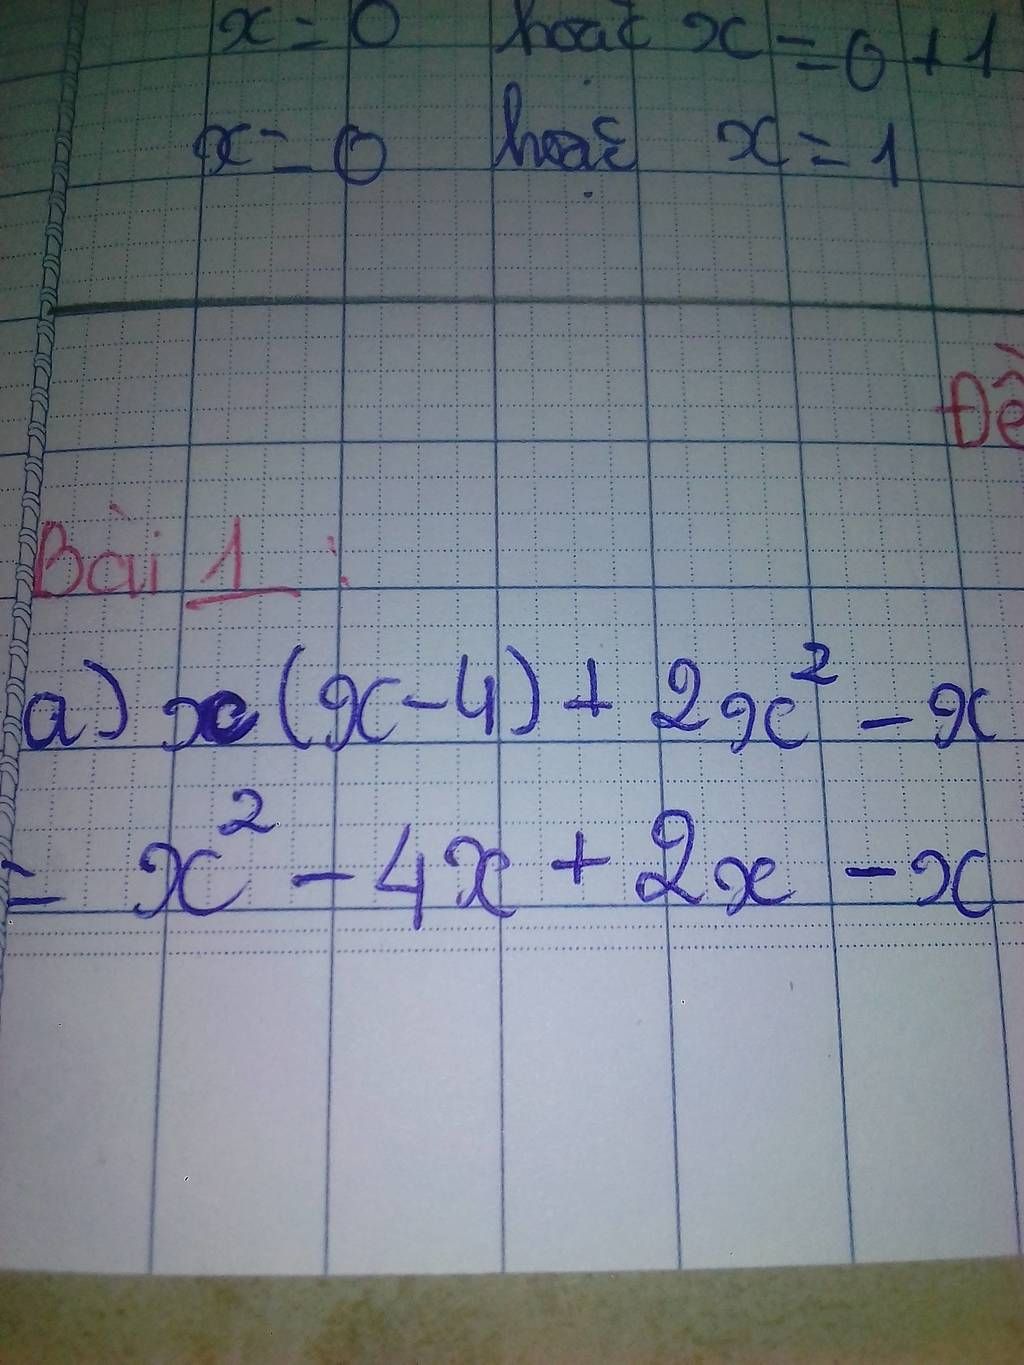 x = 0 hoặc x = 0 + 1
x = 0 hoặc x = 1
Đề
Bài 1 :
a) x(x - 4) + 2x² - x
= x² - 4x + 2x - x